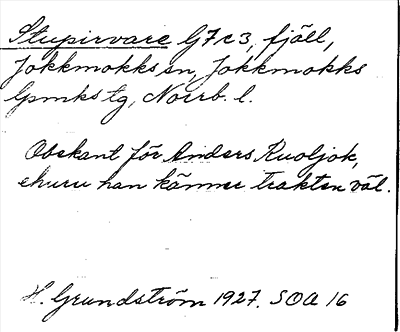 Stupirvare G7c3, fjäll,
Jokkmokks sn, Jokkmokks
lpmks tg, Norrb. l.
Obekant för Anders Ruoljok,
ehuru han känner trakten väl.
H. Grundström 1927. SOA 16